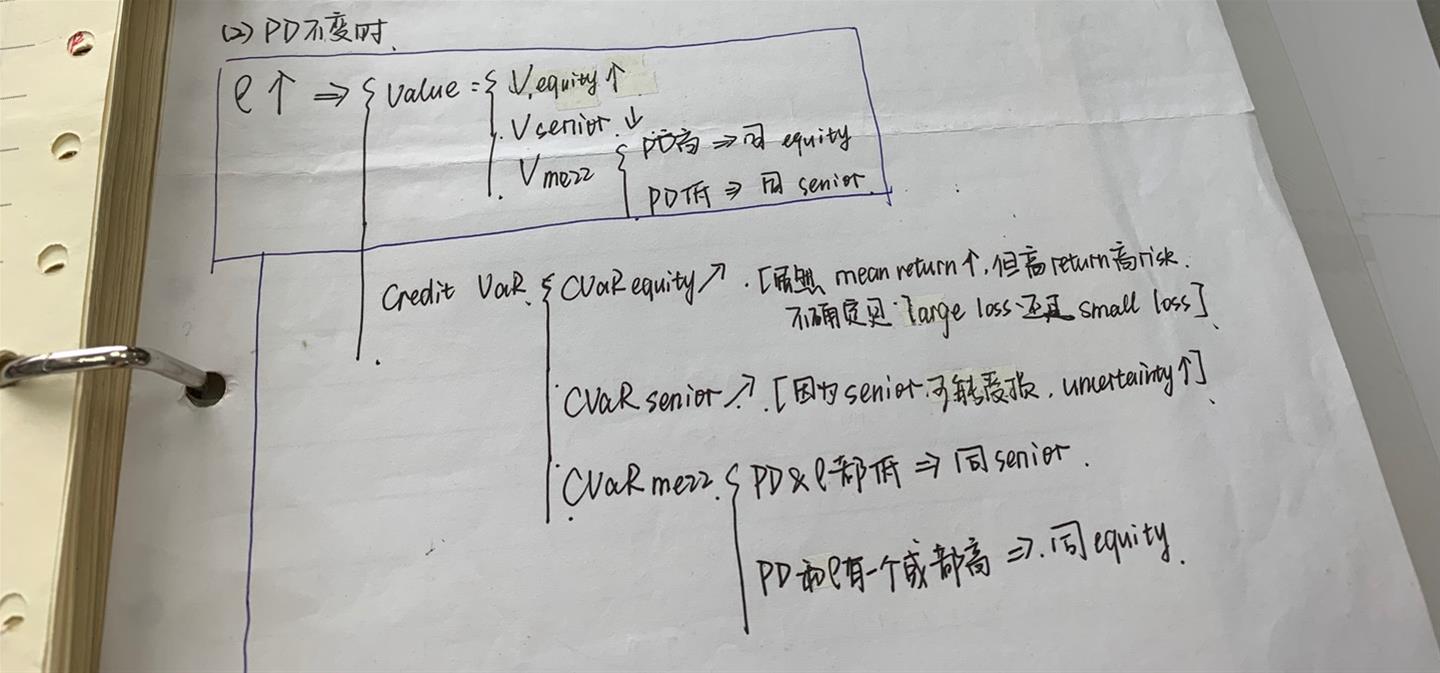 (2) PD不变时.
ρ↑ ⇒ { Value = { V equity ↑
V senior ↓
V mezz { PD高 ⇒ 同 equity
PD低 ⇒ 同 senior.
Credit VaR { CVaR equity ↗. [虽然 mean return ↑, 但高return高risk.
不确定是 large loss 还是 small loss].
CVaR senior ↗. [因为senior可能受损, uncertainty↑].
CVaR mezz { PD&ρ都低 ⇒ 同senior.
PD和ρ有一个或都高 ⇒ 同equity.